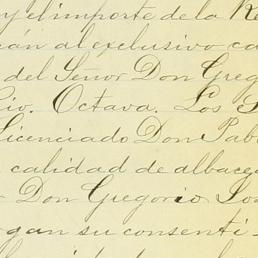 y el importe de la Re
rán al exclusivo ca
del Señor Don Greg
cio. Octava. Los S
Licenciado Don Pab
calidad de albacea
r Don Gregorio Jo
rgan su consenti-